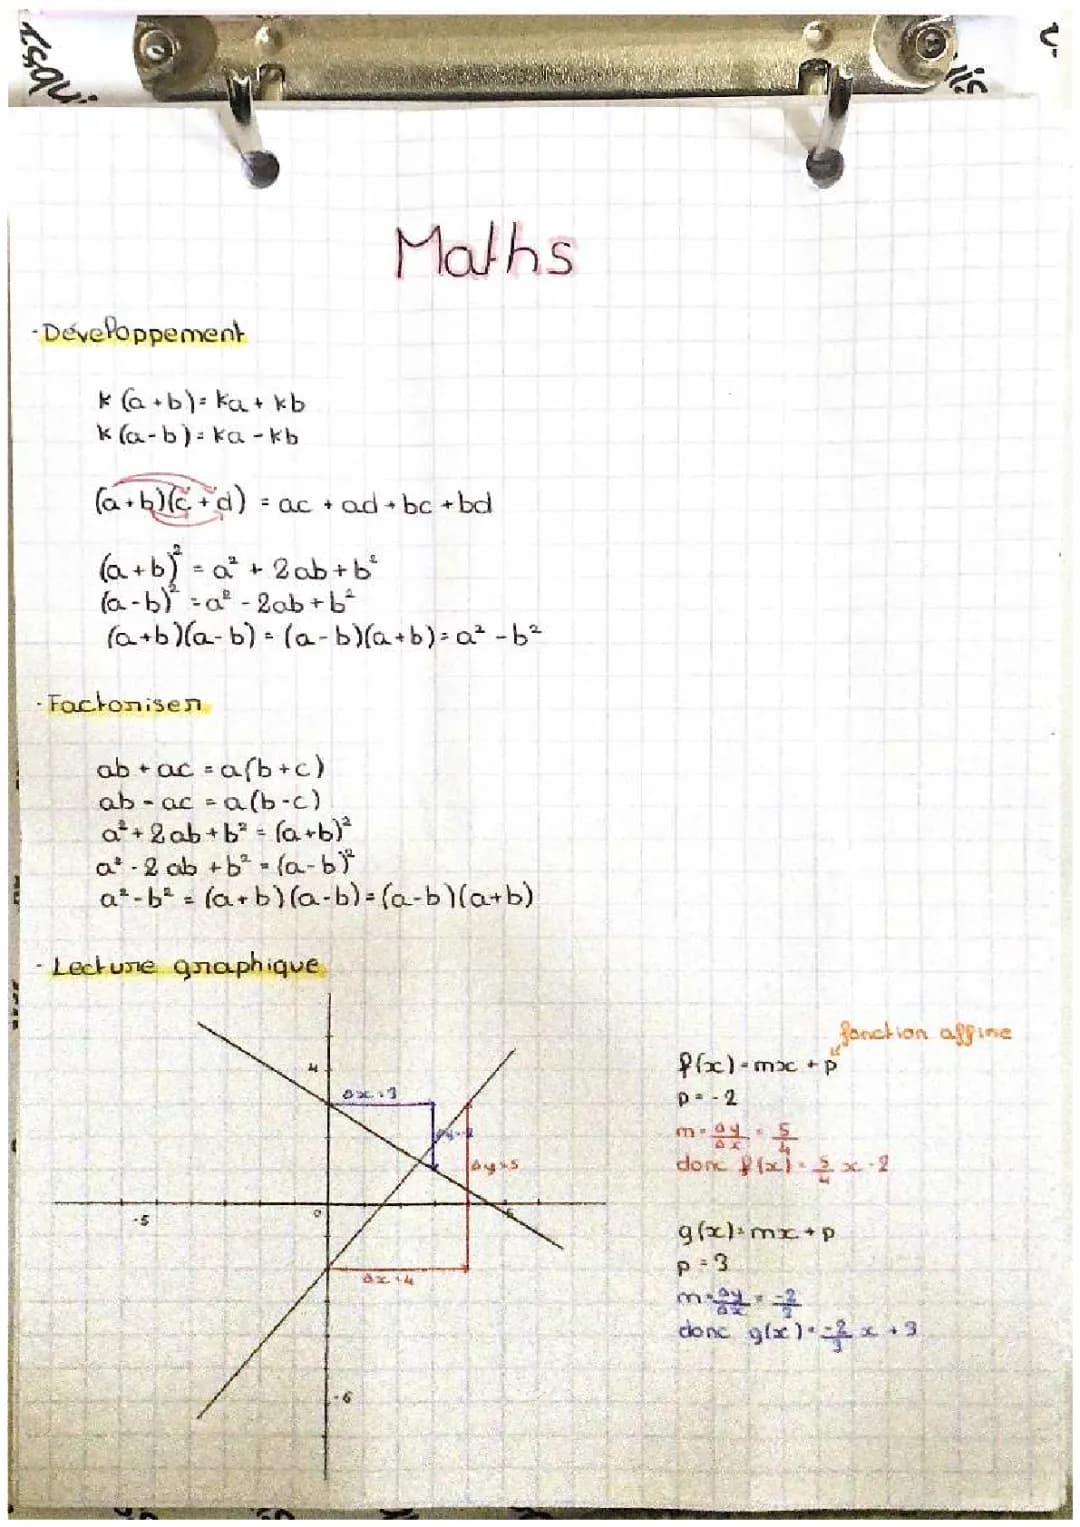 Maths
· Développement
k(a+b) = ka + kb
k(a-b) = ka - kb
(a+b)(c+d) = ac + ad + bc + bd
(a+b)² = a² + 2ab + b²
(a-b)² = a² - 2ab + b²
(a+b)(a-b) = (a-b)(a+b) = a² - b²
· Factoriser
ab + ac = a(b+c)
ab - ac = a(b-c)
a² + 2ab + b² = (a+b)²
a² - 2ab + b² = (a-b)²
a² - b² = (a+b)(a-b) = (a-b)(a+b)
· Lecture graphique
4
Δx=3
Δy=-2
Δy=5
-5
0
5
Δx=4
-6
fonction affine
f(x) = mx + p
p = -2
m = Δy/Δx = 5/4
donc f(x) = 5/4 x - 2
g(x) = mx + p
p = 3
m = Δy/Δx = -2/3
donc g(x) = -2/3 x + 3